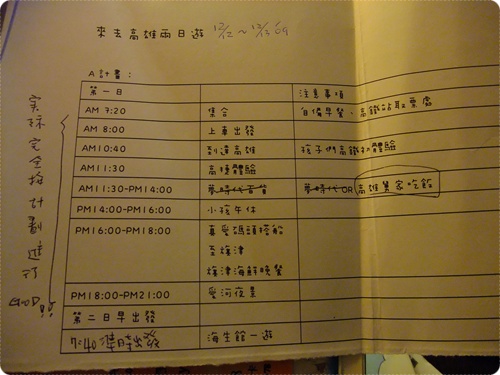 來去高雄兩日遊 12/12~12/13 09
A計畫：
第一日 注意事項
AM 7:20 集合 自備早餐、高鐵站取票處
AM 8:00 上車出發
AM10:40 到達高雄 孩子們高鐵初體驗
AM11:30 高捷體驗
AM11:30-PM14:00 夢時代百貨 夢時代OR高雄舅家吃飯
PM14:00-PM16:00 小孩午休
PM16:00-PM18:00 真愛碼頭搭船
至旗津
旗津海鮮晚餐
PM18:00-PM21:00 愛河夜景
第二日早出發
7:40準時出發 海生館一遊
實際完全按計劃進行
GOOD!!